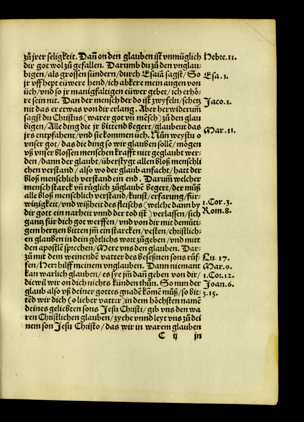 zů jrer seligkeit. Dañ on den glauben ist vnmüglich Hebre.11.
dir got wol zů gefallen. Darumb du zů den vnglau-
bigen/ als grossen sündern/ durch Esaiã sagst/ So Esa.1.
jr vff hebent eüwere hend/ ich abkere mein augen von
üch/ vnd so jr manigfaltigen eüwer gebet/ ich erhö-
re sein nit. Dan der mensch der do ist zwyfeln/ schetz Jaco.1.
nit das er etwas von dir erlang. Aber herwiderum̃
sagst du Christus (warer got vñ mẽsch) zů den glau
bigen/ Alle ding die jr bittend begert/ glaubent das
jrs entpfahent/ vnd sie kom̃en üch. Nũn weystu o Mar.11.
vnser got/ das die ding so wir glauben sollẽ/ mögen
vß vnser blossen menschen krafft nit geglaubt wer-
den/ dann der glaub/ überstygt allen bloß menschli
chen verstand/ also wo der glaub anfacht/ hatt der
bloß menschlich verstand ein end. Darum̃ welcher
mensch starck vñ rüglich zůglaubẽ begert/ der můß
alle bloß menschlich verstand/ kunst/ erfarung/ für-
witzigkeit/ vnd wißheit des fleischs (welche dann by 1.Cor.3.
dir gott ein narheit vnnd der tod ist) verlassen/ sich Rom.8.
gang für dich got werffen/ vnd von dir mit demüti-
gem hertzen bitten jm̃ ein starcken/ vesten/ christlich-
en glauben in dein götlichs wort zůgeben/ vnd mit
den apostlẽ sprechen/ Mere vns den glauben. Dar- Lu.17.
zů mit dem weinendẽ vatter des besessnen sons růf-
fen/ Herr hilff meinem vnglauben. Dann niemant Mar.9.
kan warlich glauben/ es sye jm dan geben von dir/ 1.Cor.12.
die wil wir on dich nichts künden thůn. So nun der Joan.6.
glaub also vß deiner gottes gnadẽ kom̃ẽ můß/ so bit 3.15.
tẽd wir dich (o lieber vatter) in dem höchsten namẽ
deines geliebten sons Jesu Christi/ gib vns den wa
ren Christlichen glauben/ zyehe vnnd leyt vns zů dei
nem son Jesu Christo/ das wir in warem glauben
C ij jn